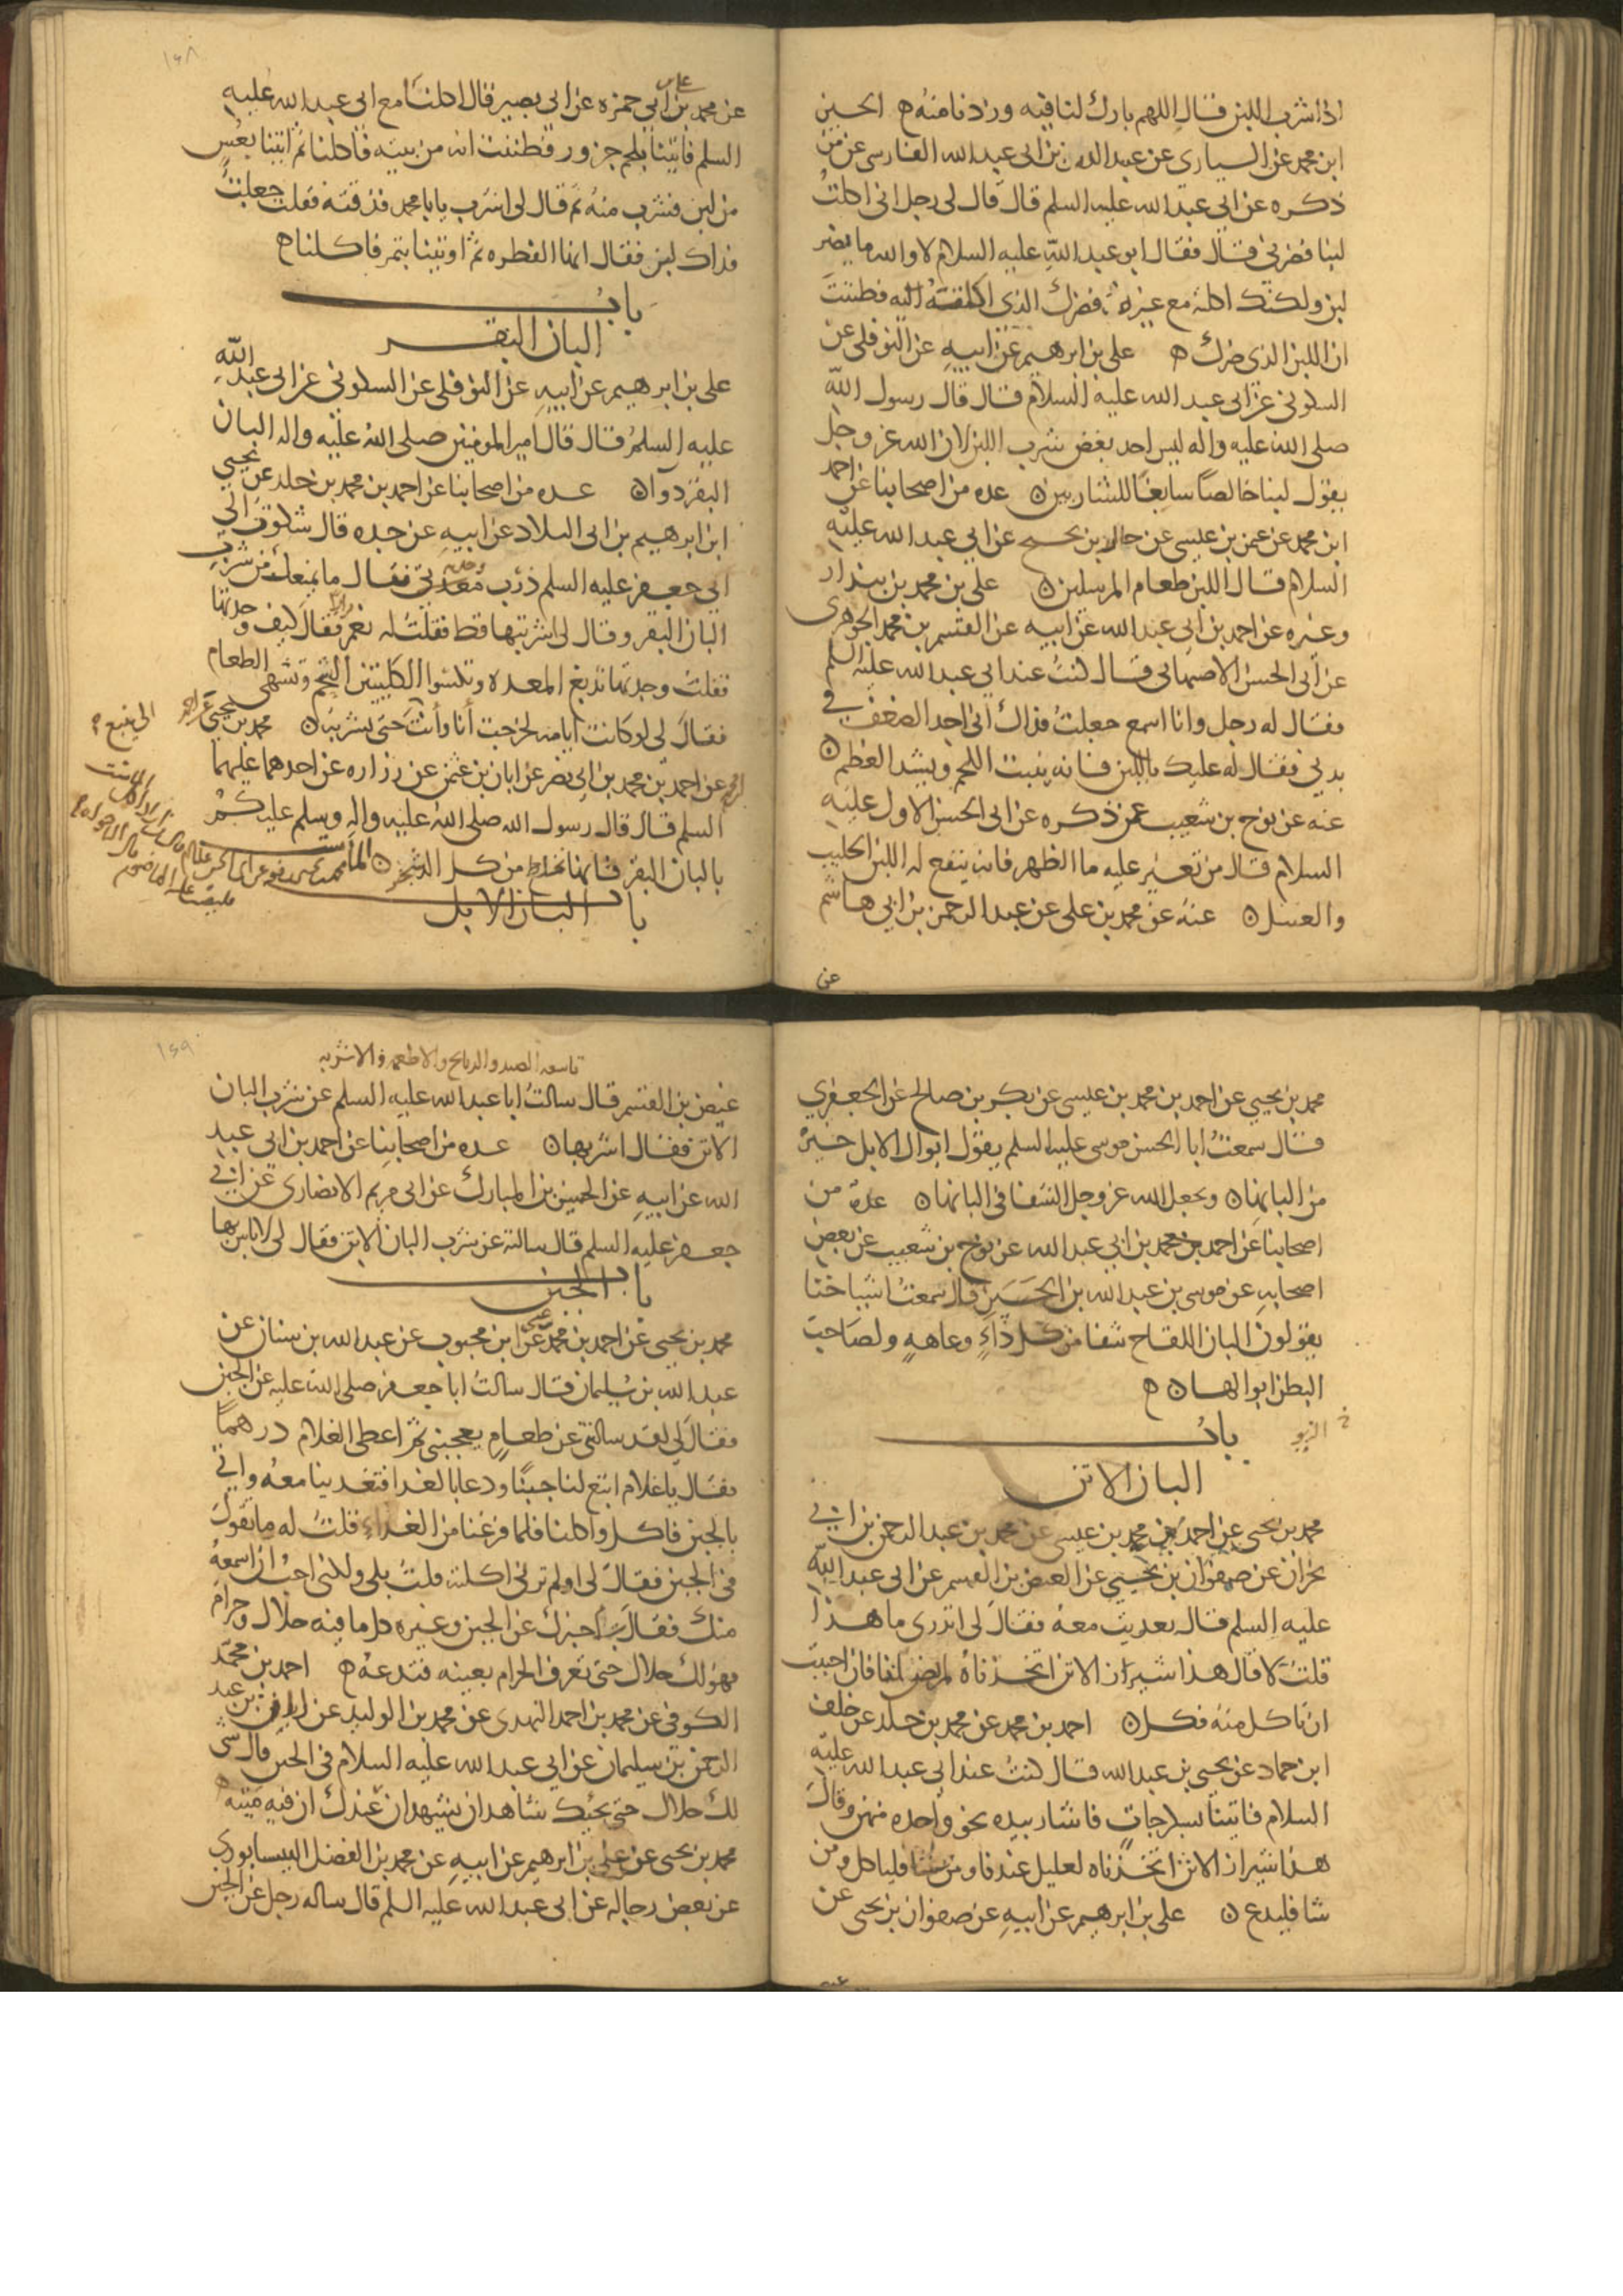 اذا شرب اللبن قال اللهم بارك لنا فيه وزدنا منه ه الحسين
ابن محمد عن السياري عن عبيد الله بن ابي عبد الله الفارسي عن من
ذكره عن ابي عبد الله عليه السلم قال قال لي رجل اني اكلت
لبنا فضرني قال فقال ابو عبد الله عليه السلام لا والله ما يضر
لبن ولكنك اكلته مع غيره فضرك الذي اكلته فظننت
ان اللبن الذي ضرك ه علي بن ابرهيم عن ابيه عن النوفلي عن
السكوني عن ابي عبد الله عليه السلام قال قال رسول الله
صلى الله عليه واله ليس احد يغص بشرب اللبن لان الله عز وجل
يقول لبنا خالصا سايغا للشاربين ن عده من اصحابنا عن احمد
ابن محمد عن عثمن بن عيسى عن خالد بن نجيح عن ابي عبد الله عليه
السلام قال اللبن طعام المرسلين ن علي بن محمد بن بندار
وغيره عن احمد بن ابي عبد الله عن ابيه عن القسم بن محمد الجوهري
عن ابي الحسن الاصبهاني قال كنت عند ابي عبد الله عليه السلم
فقال له رجل وانا اسمع جعلت فداك اني اجد الضعف في
بدني فقال له عليك باللبن فانه ينبت اللحم ويشد العظم ن
عنه عن نوح بن شعيب عمن ذكره عن ابي الحسن الاول عليه
السلام قال من تغير عليه ما الظهر فانه ينفع له اللبن الحليب
والعسل ن عنه عن محمد بن علي عن عبد الرحمن بن ابي هاشم
عن
١٥٨
عن محمد بن علي بن ابي حمزه عن ابي بصير قال اكلنا مع ابي عبد الله عليه
السلم فاتينا بلحم جزور فظننت انه من بيته فاكلنا ثم اتينا بعس
من لبن فشرب منه ثم قال لي اشرب يا با محمد فذقته فقلت جعلت
فداك لبن فقال انها الفطره ثم اوتينا بتمر فاكلنا ه
باب
البان البقر
علي بن ابرهيم عن ابيه عن النوفلي عن السكوني عن ابي عبد الله
عليه السلم قال قال امير المومنين صلى الله عليه واله البان
البقر دوا ن عده من اصحابنا عن احمد بن محمد بن خلد عن يحيى
ابن ابرهيم بن ابي البلاد عن ابيه عن جده قال شكوت الى
ابي جعفر عليه السلم ذرب معدتي فقال ما يمنعك من شرب
البان البقر وقال لي اشربتها قط فقلت له نعم مرارا فقال كيف وجدتها
فقلت وجدتها تدبغ المعده وتكسوا الكليتين الشحم وتشهي الطعام
فقال لي لو كانت ايامه لخرجت انا وانت الى ينبع حتى نشربه ن محمد بن يحيى عن احمد
عن احمد بن محمد بن ابي نصر عن ابان بن عثمن عن زراره عن احدهما عليهما
السلم قال قال رسول الله صلى الله عليه واله وسلم عليكم
بالبان البقر فانها تخلط من كل الشجر ن
باب البان الابل
محمد بن يحيى عن احمد بن محمد بن عيسى عن بكر بن صالح عن الجعفري
قال سمعت ابا الحسن موسى عليه السلم يقول ابوال الابل خير
من البانها ن ويجعل الله عز وجل الشفا في البانها ن عدة من
اصحابنا عن احمد بن محمد بن ابي عبد الله عن نوح بن شعيب عن بعض
اصحابه عن موسى بن عبد الله بن الحسين قال سمعت اشياخنا
يقولون البان اللقاح شفا من كل داء وعاهه ولصاحب
البطن ابوالها ن ه
باب
البان الاتن
محمد بن يحيى عن احمد بن محمد بن عيسى عن محمد بن عبد الرحمن بن ابي
نجران عن صفوان بن يحيى عن العيص بن القسم عن ابي عبد الله
عليه السلم قال تغديت معه فقال لي اتدري ما هذا
قلت لا قال هذا شيراز الاتن اتخذناه لمريض لنا فان احببت
ان تاكل منه فكل ن احمد بن محمد عن محمد بن خلد عن خلف
ابن حماد عن يحيى بن عبد الله قال كنت عند ابي عبد الله عليه
السلام فاتينا بسكرجات فاشار بيده نحو واحده منهن وقال
هذا شيراز الاتن اتخذناه لعليل عندنا ومن شا فلياكل ومن
شا فليدع ن علي بن ابرهيم عن ابيه عن صفوان بن يحيى عن
عيص
١٥٩
تاسعه الصيد والذبايح والاطعمه والاشربه
عيص بن القسم قال سالت ابا عبد الله عليه السلم عن شرب البان
الاتن فقال اشربها ن عده من اصحابنا عن احمد بن ابي عبد
الله عن ابيه عن الحسين بن المبارك عن ابي مريم الانصاري عن ابي
جعفر عليه السلم قال سالته عن شرب البان الاتن فقال لي لا باس بها
باب الجبن
محمد بن يحيى عن احمد بن محمد بن عيسى عن ابن محبوب عن عبد الله بن سنان عن
عبد الله بن سليمان قال سالت ابا جعفر صلى الله عليه عن الجبن
فقال لي لقد سالتني عن طعام يعجبني ثم اعطى الغلام درهما
فقال يا غلام ابتع لنا جبنا ودعا بالغدا فتغدينا معه واتي
بالجبن فاكل واكلنا فلما فرغنا من الغداء قلت له ما تقول
في الجبن فقال لي اولم ترني اكلته قلت بلى ولكني احب ان اسمعه
منك فقال ساخبرك عن الجبن وغيره كل ما فيه حلال وحرام
فهو لك حلال حتى تعرف الحرام بعينه فتدعه ه احمد بن محمد
الكوفي عن محمد بن احمد النهدي عن محمد بن الوليد عن ابان بن عبد
الرحمن بن سليمان عن ابي عبد الله عليه السلام في الجبن قال كل شي
لك حلال حتى يجيك شاهدان يشهدان عندك ان فيه ميته ه
محمد بن يحيى عن علي بن ابرهيم عن ابيه عن محمد بن الفضل النيسابوري
عن بعض رجاله عن ابي عبد الله عليه السلم قال ساله رجل عن الجبن